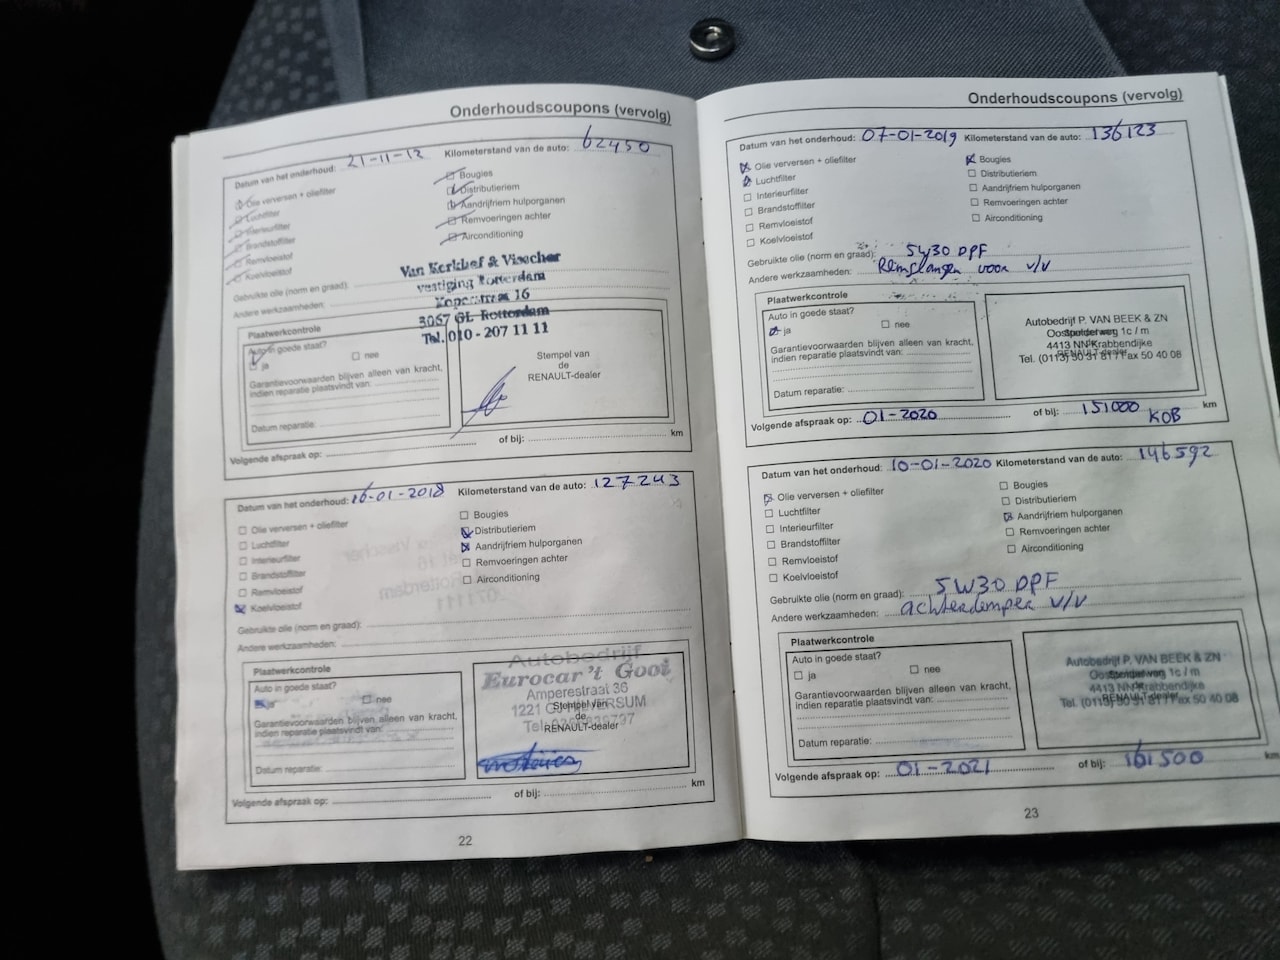 Onderhoudscoupons (vervolg)
Datum van het onderhoud: 21-11-12 Kilometerstand van de auto: 62450
Olie verversen + oliefilter
Luchtfilter
Interieurfilter
Brandstoffilter
Remvloeistof
Koelvloeistof
Bougies
Distributieriem
Aandrijfriem hulporganen
Remvoeringen achter
Airconditioning
Gebruikte olie (norm en graad):
Andere werkzaamheden:
Van Kerkhof & Visscher
vestiging Rotterdam
Koperstraat 16
3067 GL Rotterdam
Tel. 010 - 207 11 11
Plaatwerkcontrole
Auto in goede staat?
ja
nee
Garantievoorwaarden blijven alleen van kracht,
indien reparatie plaatsvindt van:
Datum reparatie:
Stempel van
de
RENAULT-dealer
Volgende afspraak op: of bij: km
Datum van het onderhoud: 16-01-2018 Kilometerstand van de auto: 127243
Olie verversen + oliefilter
Luchtfilter
Interieurfilter
Brandstoffilter
Remvloeistof
Koelvloeistof
Bougies
Distributieriem
Aandrijfriem hulporganen
Remvoeringen achter
Airconditioning
Gebruikte olie (norm en graad):
Andere werkzaamheden:
Plaatwerkcontrole
Auto in goede staat?
ja
nee
Garantievoorwaarden blijven alleen van kracht,
indien reparatie plaatsvindt van:
Datum reparatie:
Autobedrijf
Eurocar 't Gooi
Amperestraat 36
1221 HILVERSUM
Stempel van
de
RENAULT-dealer
Volgende afspraak op: of bij: km
22
Onderhoudscoupons (vervolg)
Datum van het onderhoud: 07-01-2019 Kilometerstand van de auto: 136123
Olie verversen + oliefilter
Luchtfilter
Interieurfilter
Brandstoffilter
Remvloeistof
Koelvloeistof
Bougies
Distributieriem
Aandrijfriem hulporganen
Remvoeringen achter
Airconditioning
Gebruikte olie (norm en graad): 5W30 DPF
Andere werkzaamheden: Remslangen voor v/v
Plaatwerkcontrole
Auto in goede staat?
ja
nee
Garantievoorwaarden blijven alleen van kracht,
indien reparatie plaatsvindt van:
Datum reparatie:
Autobedrijf P. VAN BEEK & ZN
Oostpolderweg 1c / m
4413 NN Krabbendijke
Tel. (0113) 50 31 81 / Fax 50 40 08
RENAULT-dealer
Volgende afspraak op: 01-2020 of bij: 151000 km
KOB
Datum van het onderhoud: 10-01-2020 Kilometerstand van de auto: 146592
Olie verversen + oliefilter
Luchtfilter
Interieurfilter
Brandstoffilter
Remvloeistof
Koelvloeistof
Bougies
Distributieriem
Aandrijfriem hulporganen
Remvoeringen achter
Airconditioning
Gebruikte olie (norm en graad): 5W30 DPF
Andere werkzaamheden: achterdemper v/v
Plaatwerkcontrole
Auto in goede staat?
ja
nee
Garantievoorwaarden blijven alleen van kracht,
indien reparatie plaatsvindt van:
Datum reparatie:
Autobedrijf P. VAN BEEK & ZN
Oostpolderweg 1c / m
4413 NN Krabbendijke
Tel. (0113) 50 31 81 / Fax 50 40 08
RENAULT-dealer
Volgende afspraak op: 01-2021 of bij: 161500 km
23